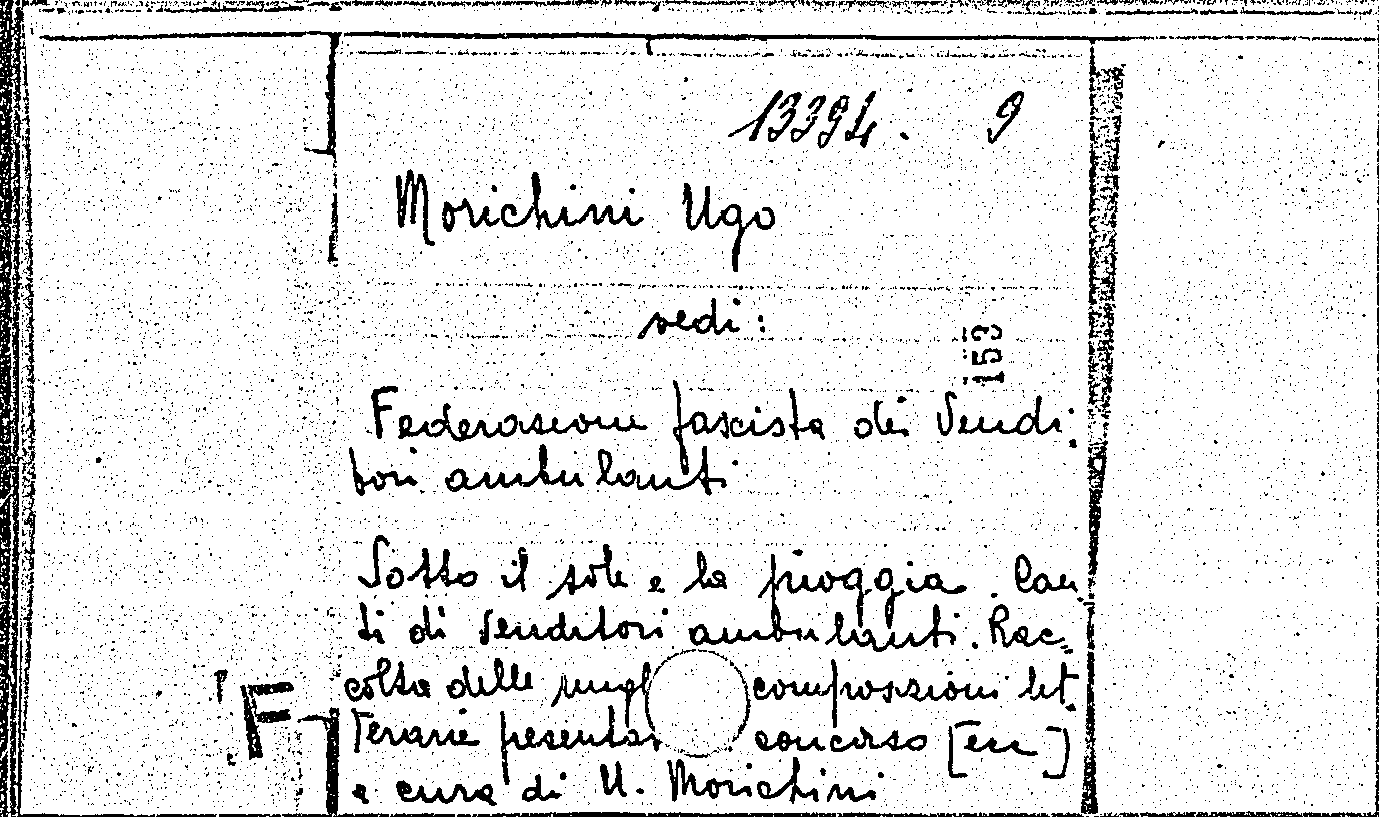 13394. 9
Morichini Ugo
vedi:
153
Federazione fascista dei Vendi-
tori ambulanti
Sotto il sole e la pioggia. Can-
ti di venditori ambulanti. Rac-
colta delle migl composizioni let-
F
terarie presenta concorso [ecc]
a cura di U. Morichini